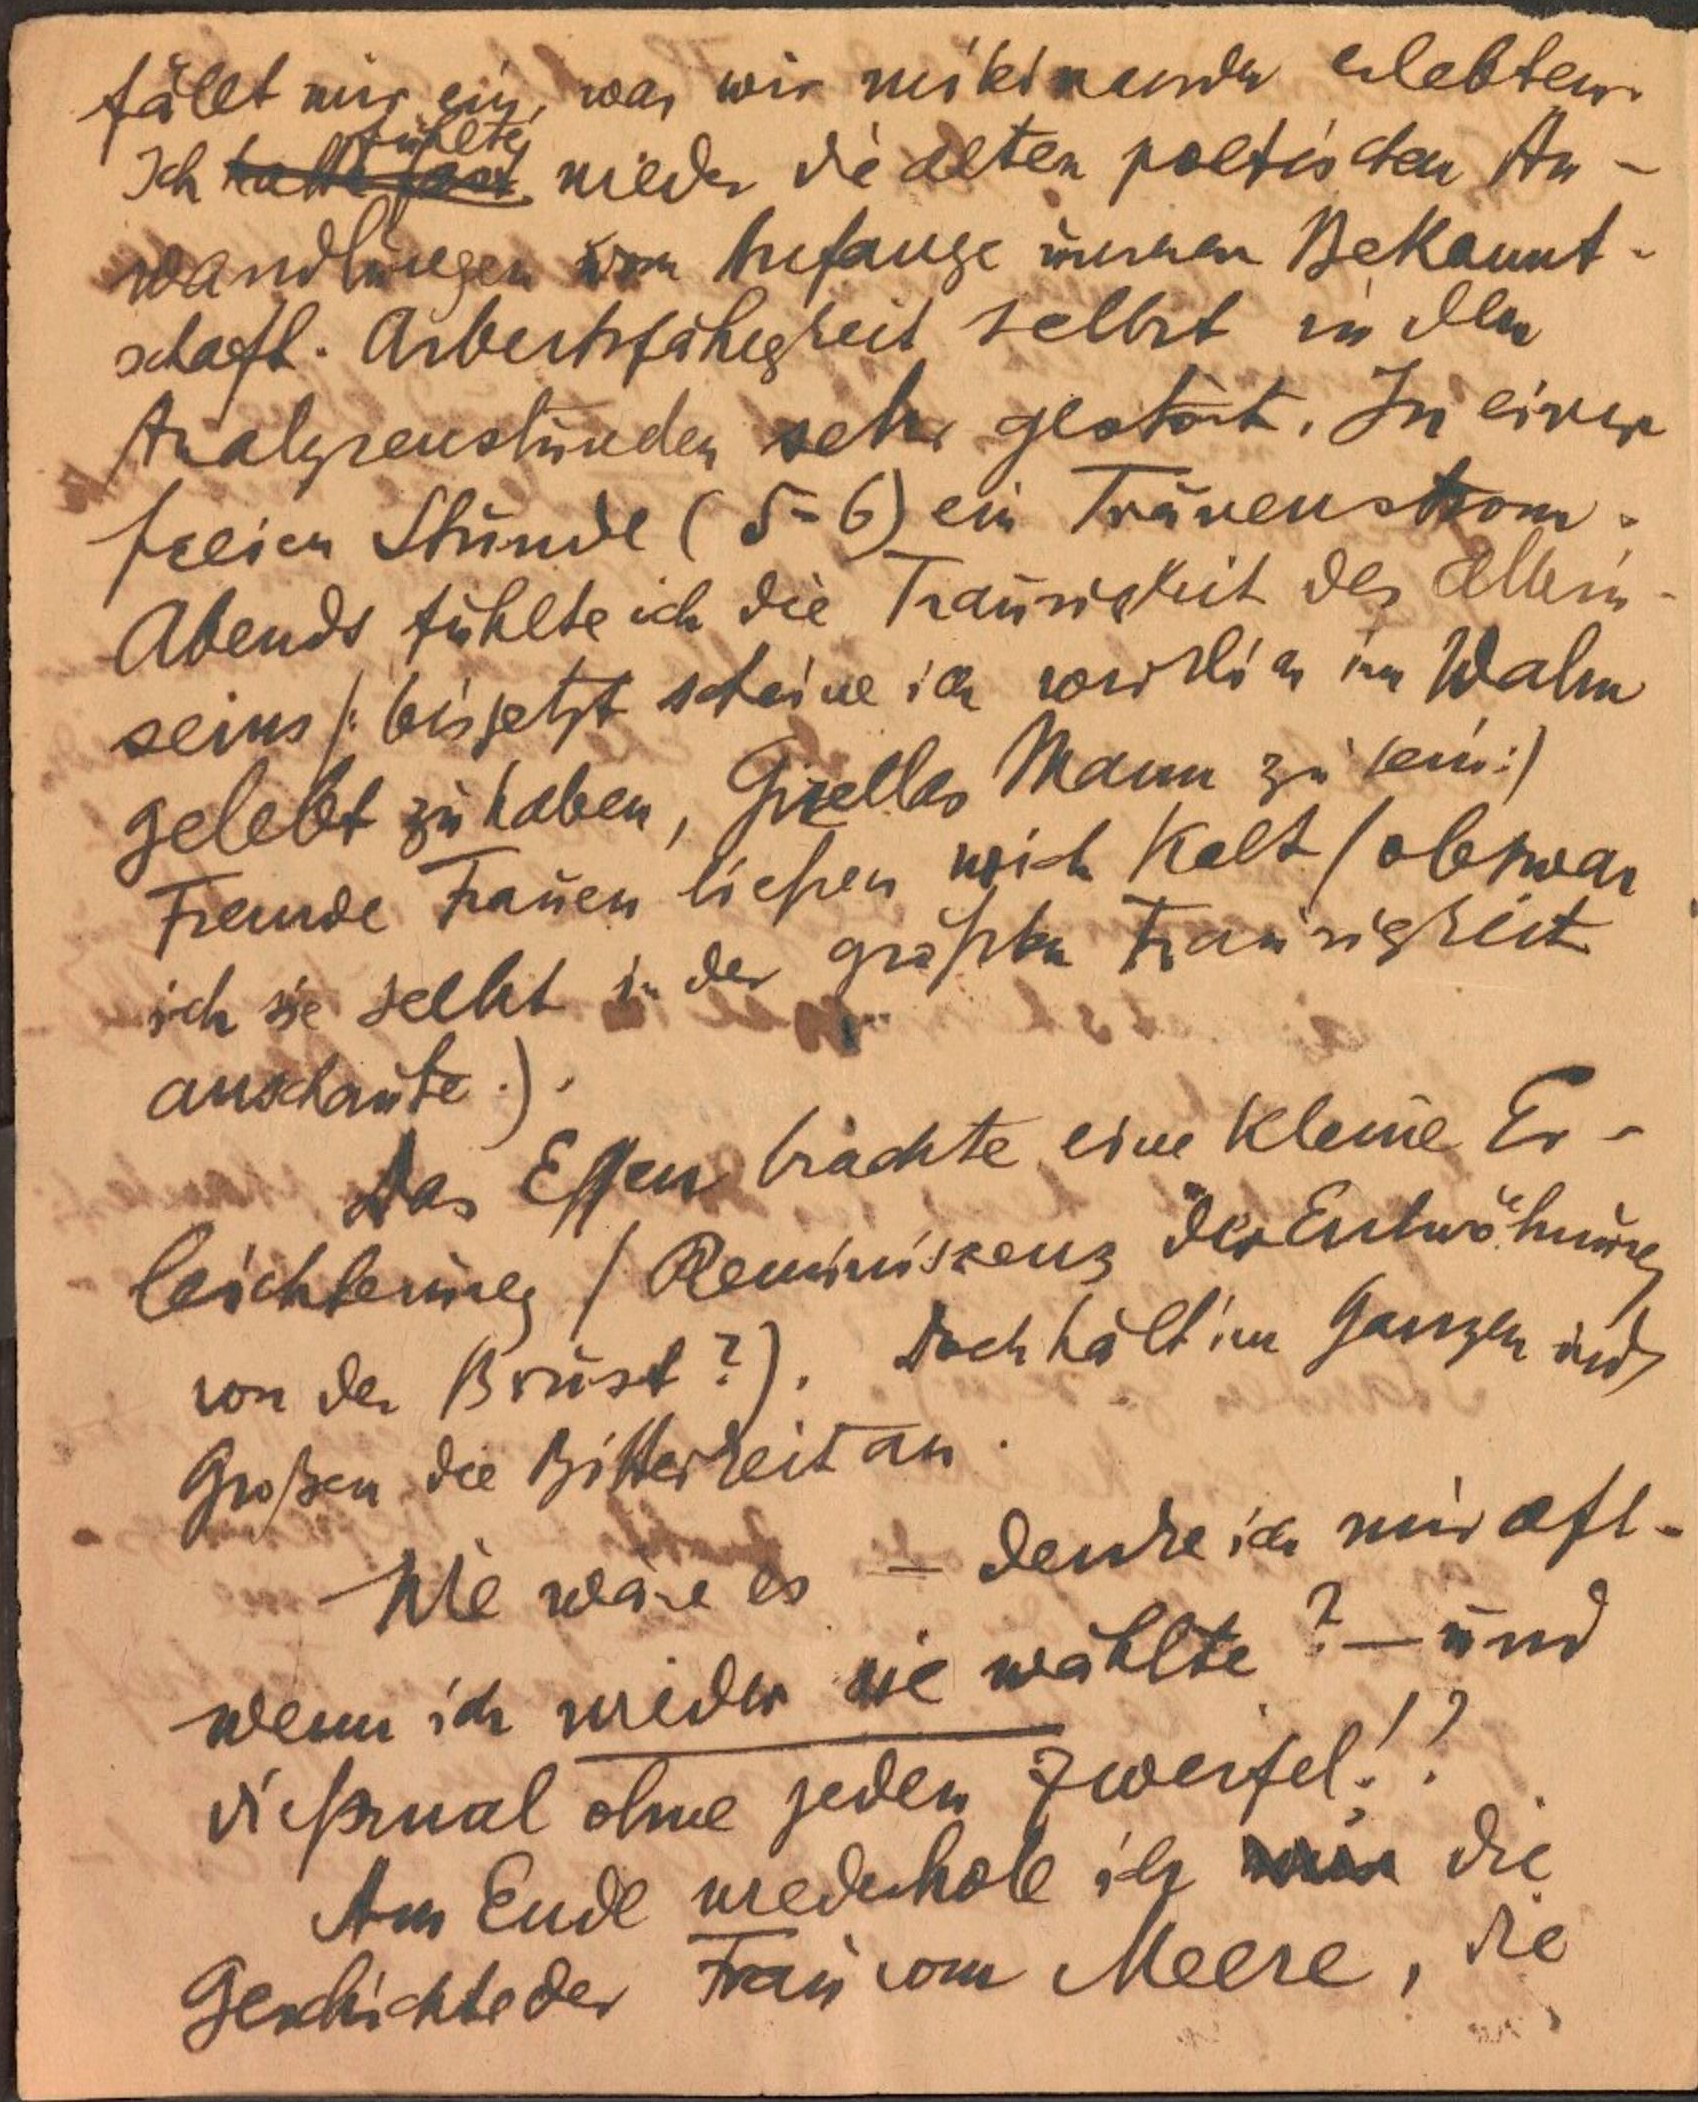 fällt mir ein, was wir miteinander erlebten.
Ich hatte fast fühlte wieder die alten poetischen An-
wandlungen vom Anfange unserer Bekannt-
schaft. Arbeitsfähigkeit selbst in den
Analysenstunden sehr gestört. In einer
freien Stunde (5-6) ein Tränenstrom.
Abends fühlte ich die Traurigkeit des Allein-
seins /: bis jetzt scheine ich wirklich im Wahn
gelebt zu haben, Gisellas Mann zu sein :/
Fremde Frauen ließen mich kalt (obzwar
ich sie selbst in der größten Traurigkeit
anschaute.).
Das Essen brachte eine kleine Er-
leichterung (Reminiszenz der Entwöhnung
von der Brust?). Doch hält im Ganzen und
Großen die Bitterkeit an.
Wie wäre es – denke ich mir oft –
wenn ich wieder sie wählte? – und
dießmal ohne jeden Zweifel!?
Am Ende wiederhole ich die
Geschichte der Frau vom Meere, die